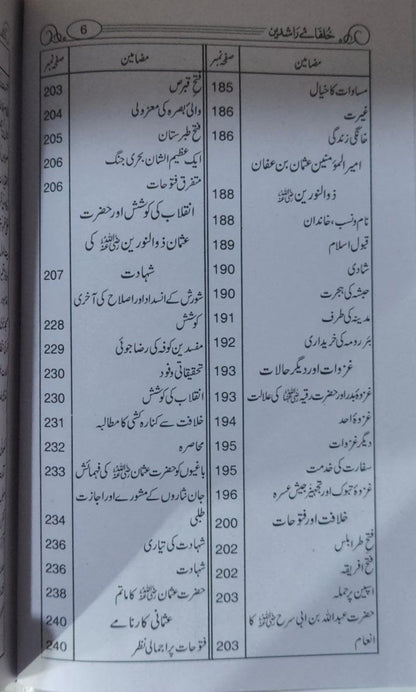 خلفائے راشدین
6
مضامین صفحہ نمبر
مساوات کا خیال 185
غیرت 186
خانگی زندگی 186
امیر المؤمنین عثمان بن عفان
ذوالنورین رضی اللہ عنہ 188
نام ونسب، خاندان 188
قبول اسلام 189
شادی 190
حبشہ کی ہجرت 190
مدینہ کی طرف 191
بئر رومہ کی خریداری 192
غزوات اور دیگر حالات 193
غزوہ بدر اور حضرت رقیہ رضی اللہ عنہا کی علالت 193
غزوہ احد 194
دیگر غزوات 195
سفارت کی خدمت 195
غزوہ تبوک اور تجہیز جیش عسرہ 196
خلافت اور فتوحات 200
فتح طرابلس 202
فتح افریقہ 202
اسپین پر حملہ 203
حضرت عبداللہ بن ابی سرح رضی اللہ عنہ کا
انعام 203
مضامین صفحہ نمبر
فتح قبرص 203
والئ بصرہ کی معزولی 204
فتح طبرستان 205
ایک عظیم الشان بحری جنگ 206
متفرق فتوحات 206
انقلاب کی کوشش اور حضرت
عثمان ذوالنورین رضی اللہ عنہ کی
شہادت 207
شورش کے انسداد اور اصلاح کی آخری
کوشش 228
مفسدین کوفہ کی رضا جوئی 229
تحقیقاتی وفود 230
انقلاب کی کوشش 230
خلافت سے کنارہ کشی کا مطالبہ 231
محاصرہ 232
باغیوں کو حضرت عثمان رضی اللہ عنہ کی فہمائش 233
جان نثاروں کے مشورے اور اجازت
طلبی 234
شہادت کی تیاری 236
شہادت 236
حضرت عثمان رضی اللہ عنہ کا ماتم 238
عثمانی کارنامے 240
فتوحات پر اجمالی نظر 240